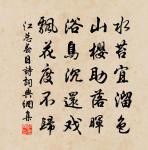 水苔宜溜色
山櫻助落暉
浴鳥沉還戲
飄花度不歸
江总春日詩詞典網集